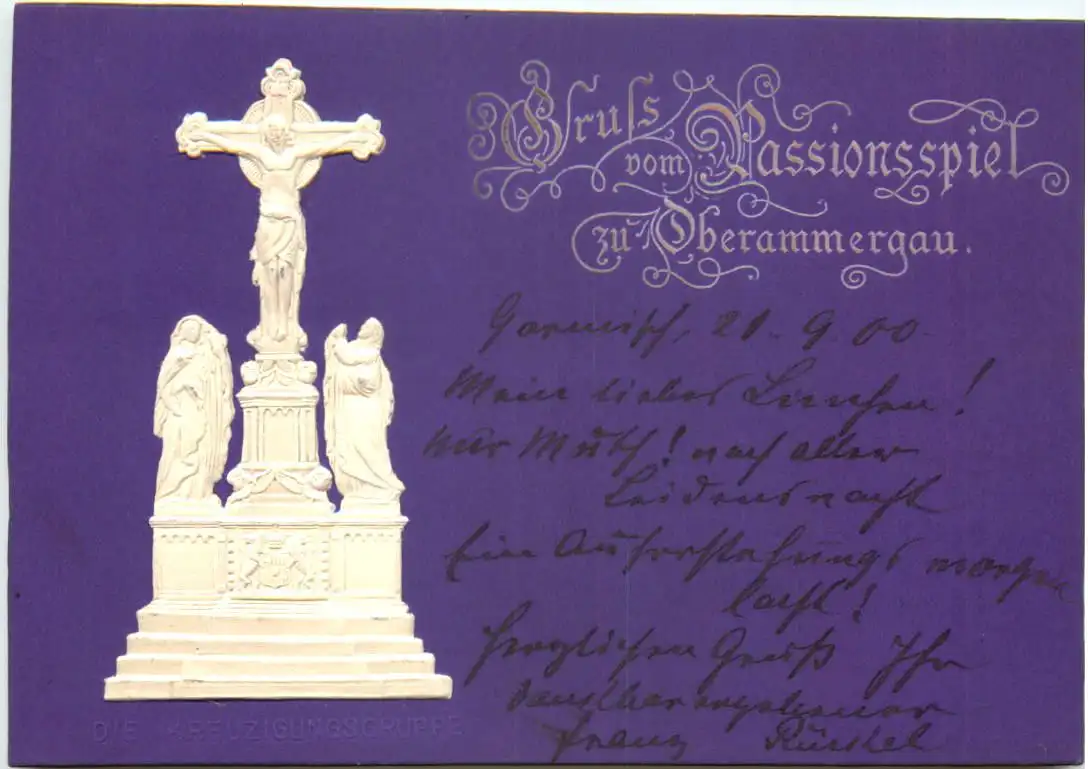 Gruss
vom Passionsspiel
zu Oberammergau.
Garmisch, 21. 9. 00
Mein liebes Lenchen!
Nur Muth! nach aller
Leidensnacht
Ein Auferstehungsmorgen
lacht!
Herzlichen Gruß Ihr
dankbar ergebener
Franz
DIE KREUZIGUNGSGRUPPE